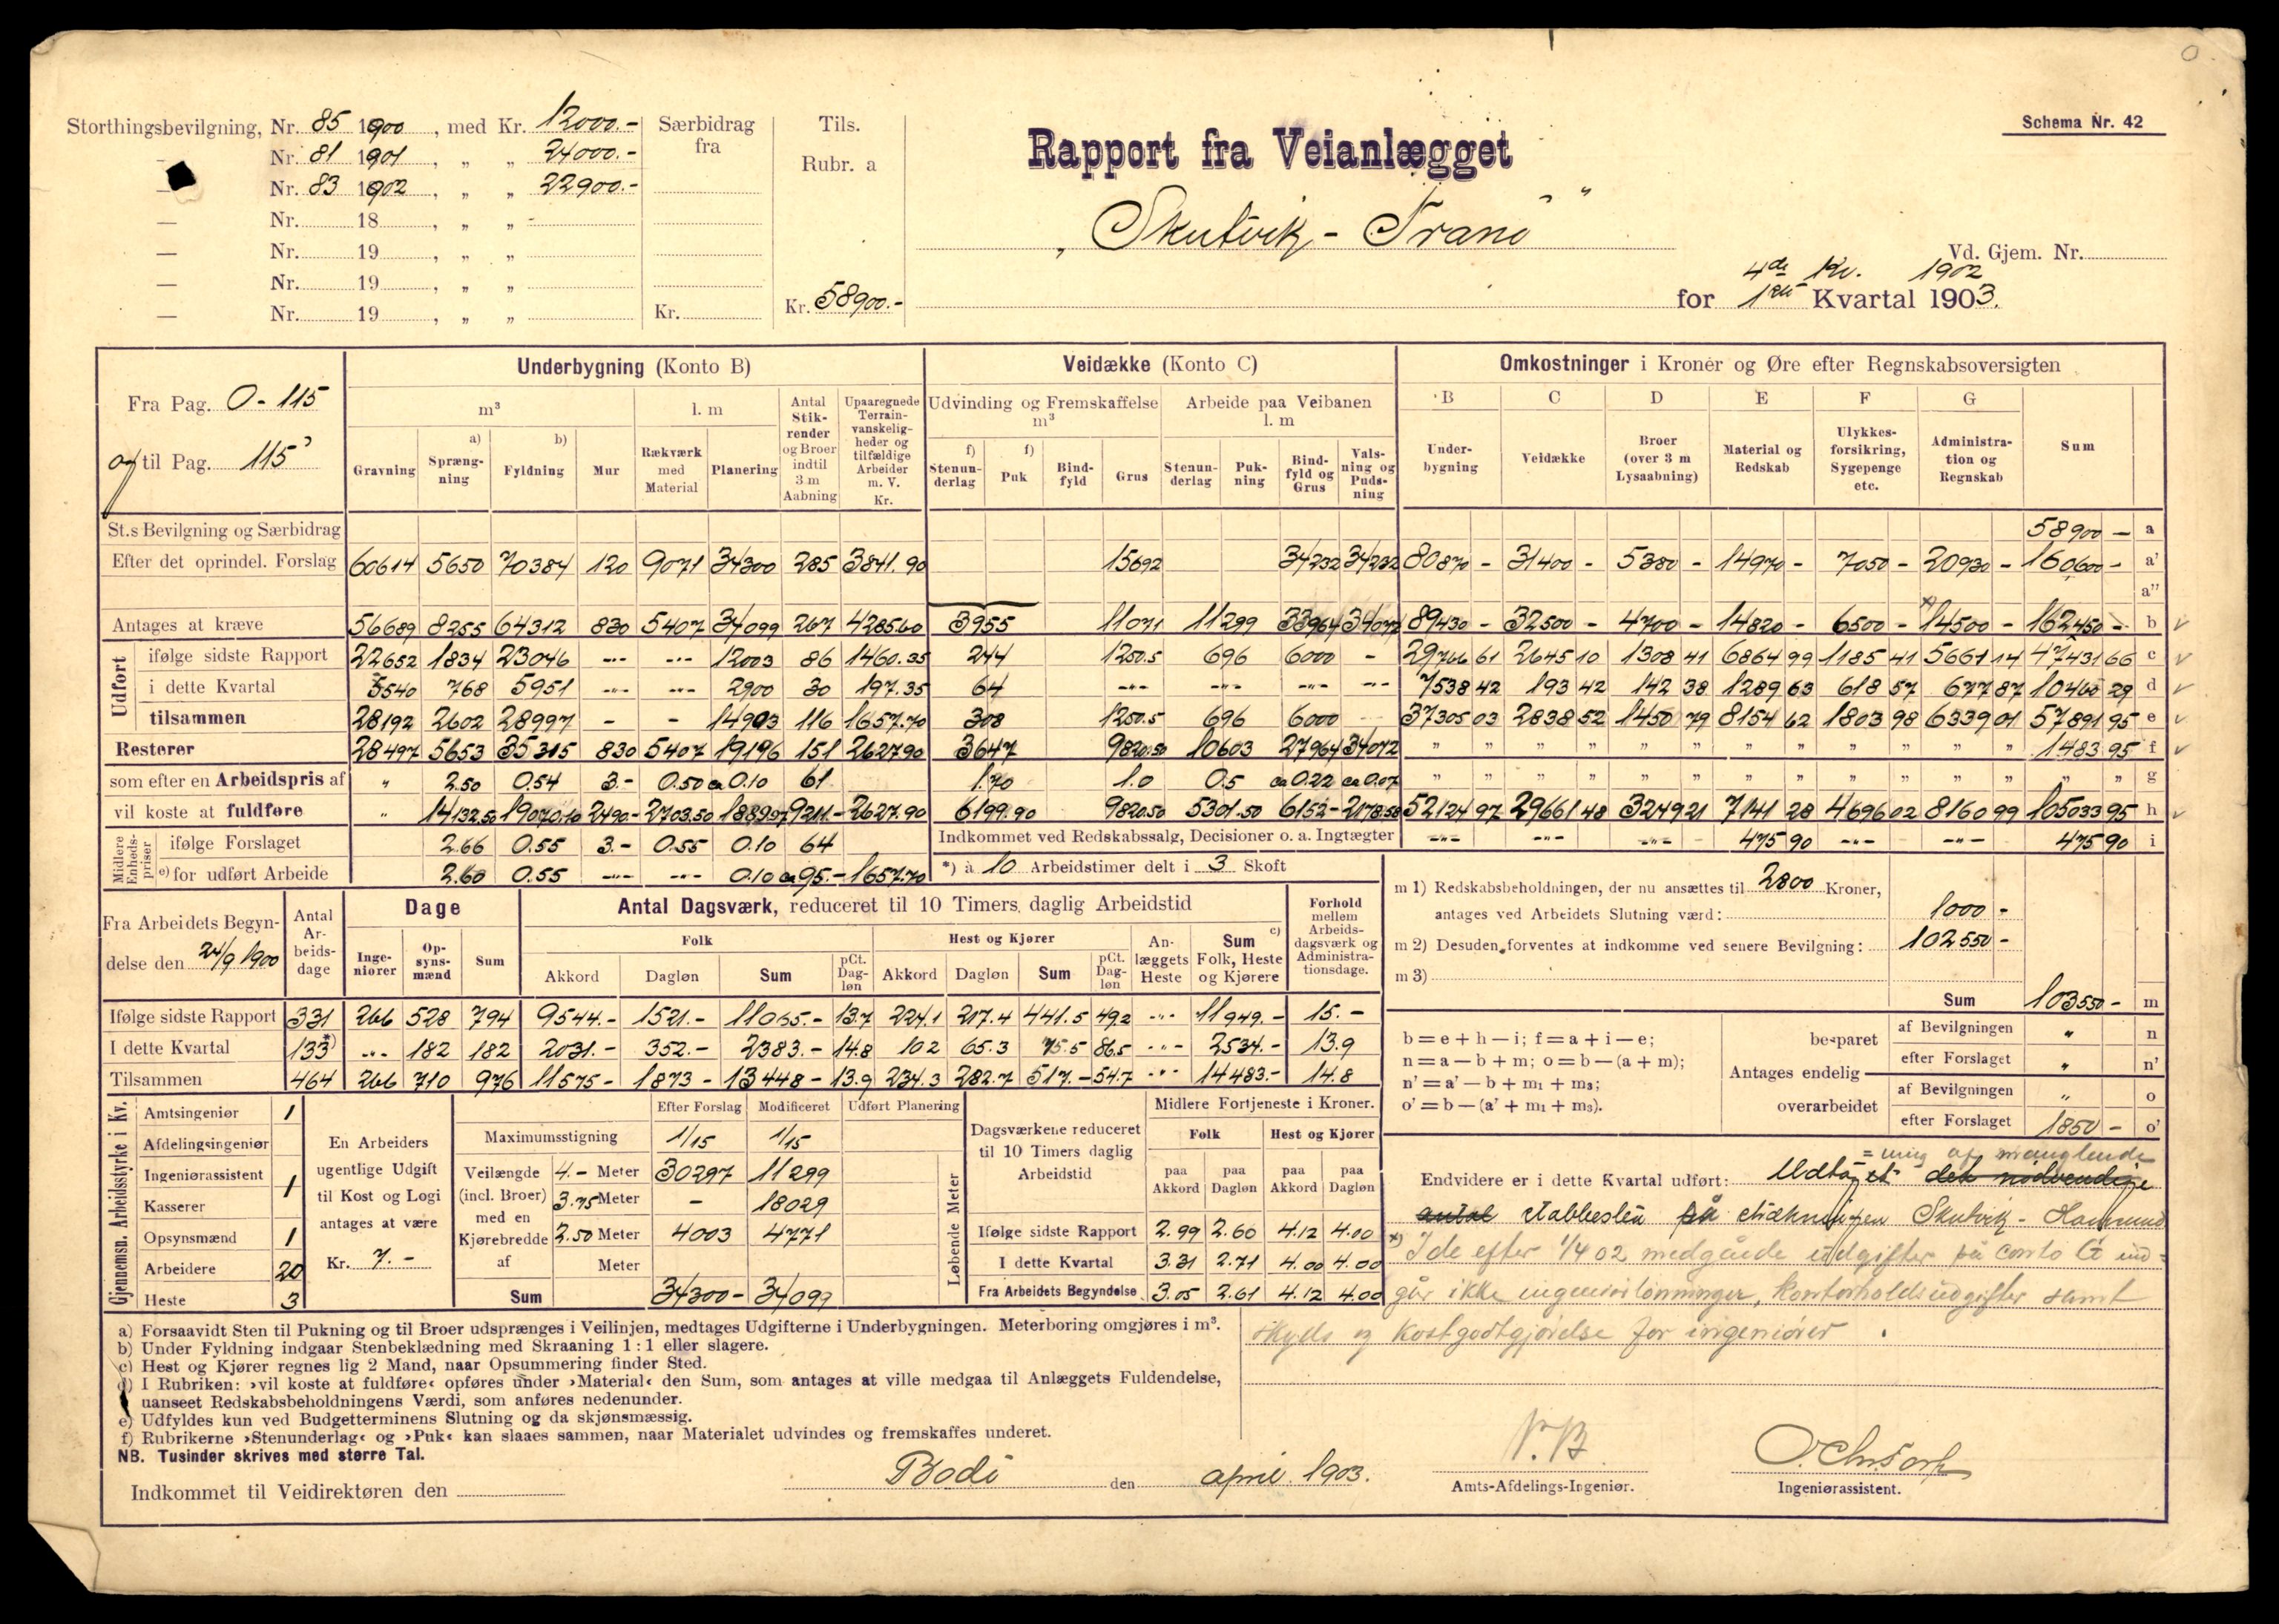 Storthingsbevilgning, Nr. 85 1900, med Kr. 12000.- Særbidrag fra Tils. Rubr. a
— Nr. 81 1901, „ „ 24000.-
— Nr. 83 1902, „ „ 22900.-
— Nr. 18 , „ „ -
— Nr. 19 , „ „
— Nr. 19 , „ „
— Nr. 19 , „ „ Kr. Kr. 58900.-
Schema Nr. 42
Rapport fra Veianlægget
„Skutvik - Tranö"
Vd. Gjem. Nr.
4de Kv. 1902
for 1ste Kvartal 1903.
Fra Pag. 0 - 115
og til Pag. 115
Underbygning (Konto B)
m³ l. m
Gravning a) Sprængning b) Fyldning Mur Rækværk med Material Planering Antal Stikrender og Broer indtil 3 m Aabning Upaaregnede Terrainvanskeligheder og tilfældige Arbeider m. V. Kr.
Veidække (Konto C)
Udvinding og Fremskaffelse m³ Arbeide paa Veibanen l. m
f) Stenunderlag f) Puk Bindfyld Grus Stenunderlag Pukning Bindfyld og Grus Valsning og Pudsning
Omkostninger i Kroner og Øre efter Regnskabsoversigten
B C D E F G
Underbygning Veidække Broer (over 3 m Lysaabning) Material og Redskab Ulykkesforsikring, Sygepenge etc. Administration og Regnskab Sum
St.s Bevilgning og Særbidrag 58900 — a
Efter det oprindel. Forslag 60614 5650 70384 120 9071 34300 285 3841.90 15692 34232 34232 80870 - 31400 - 5380 - 14970 - 7050 - 20930 - 160600 - a'
a"
Antages at kræve 56689 8255 64312 830 5407 34099 267 4285.60 3955 11071 11299 33964 34072 89430 - 32500 - 4700 - 14820 - 6500 - *) 14500 - 162450 - b
Udført
ifølge sidste Rapport 22652 1834 23046 -"- -"- 12003 86 1460.35 244 1250.5 696 6000 - 29766 61 2645 10 1308 41 6864 99 1185 41 5661 14 47431 66 c
i dette Kvartal 5540 768 5951 -"- -"- 2900 30 197.35 64 -"- -"- -"- -"- 7538 42 193 42 142 38 1289 63 618 57 677 87 10460 29 d
tilsammen 28192 2602 28997 - - 14903 116 1657.70 308 1250.5 696 6000 37305 03 2838 52 1450 79 8154 62 1803 98 6339 01 57891 95 e
Resterer 28497 5653 35315 830 5407 19196 151 2627.90 3647 9820.50 10603 27964 34072 „ „ „ „ „ „ „ „ „ „ „ „ 1483 95 f
som efter en Arbeidspris af " 2.50 0.54 3.- 0.50 ca 0.10 61 1.70 1.0 0.5 ca 0.22 ca 0.07 „ „ „ „ „ „ „ „ „ „ „ „ „ „ g
vil koste at fuldføre " 14132.50 19070.10 2490.- 2703.50 9211.- 2627.90 6199.90 9820.50 5301.50 6152 - 2178.58 52124 97 29661 48 3249 21 7141 28 4696 02 8160 99 105033 95 h
Midlere Enhedspriser e)
ifølge Forslaget 2.66 0.55 3.- 0.55 0.10 64
Indkommet ved Redskabssalg, Decisioner o. a. Ingtægter -"- -"- -"- 475 90 -"- -"- 475 90 i
for udført Arbeide 2.60 0.55 -"- -"- 0.10 ca 95.- 1657.70
*) à 10 Arbeidstimer delt i 3 Skoft
Fra Arbeidets Begyndelse den 24/9 1900
Antal Arbeidsdage
Dage
Ingeniører Opsynsmænd Sum
Antal Dagsværk, reduceret til 10 Timers daglig Arbeidstid
Folk Hest og Kjører
Akkord Dagløn Sum pCt. Dagløn Akkord Dagløn Sum pCt. Dagløn Anlæggets Heste Sum c) Folk, Heste og Kjørere
Forhold mellem Arbeidsdagsværk og Administrationsdage.
Ifølge sidste Rapport 331 266 528 794 9544.- 1521.- 11065.- 13.7 224.1 217.4 441.5 49.2 -"- 11949.- 15.-
I dette Kvartal 133*) -"- 182 182 2031.- 352.- 2383.- 14.8 10.2 65.3 75.5 86.5 -"- 2534.- 13.9
Tilsammen 464 266 710 976 11575 - 1873 - 13448 - 13.9 234.3 282.7 517.- 54.7 -"- 14483.- 14.8
m 1) Redskabsbeholdningen, der nu ansættes til 2800 Kroner,
antages ved Arbeidets Slutning værd: 1000 -
m 2) Desuden forventes at indkomme ved senere Bevilgning: 102550 -
m 3)
Sum 103550 - m
b = e + h — i; f = a + i — e;
n = a — b + m; o = b — (a + m);
n' = a' — b + m₁ + m₃;
o' = b — (a' + m₁ + m₃).
Antages endelig
besparet af Bevilgningen " n
efter Forslaget " n'
overarbeidet af Bevilgningen " o
efter Forslaget 1850 - o'
Gjennemsn. Arbeidsstyrke i Kv.
Amtsingeniør 1
Afdelingsingeniør
Ingeniørassistent 1
Kasserer
Opsynsmænd 1
Arbeidere 20
Heste 3
En Arbeiders ugentlige Udgift til Kost og Logi antages at være Kr. 7.-
Efter Forslag Modificeret Udført Planering
Maximumsstigning 1/15 1/15
Veilængde (incl. Broer) med en Kjørebredde af
4.- Meter 30297 11299
3.75 Meter - 18029
2.50 Meter 4003 4771
Meter
Sum 34300 - 34099
Løbende Meter
Dagsværkene reduceret til 10 Timers daglig Arbeidstid
Midlere Fortjeneste i Kroner.
Folk Hest og Kjører
paa Akkord paa Dagløn paa Akkord paa Dagløn
Ifølge sidste Rapport 2.99 2.60 4.12 4.00
I dette Kvartal 3.31 2.71 4.00 4.00
Fra Arbeidets Begyndelse 3.05 2.61 4.12 4.00
= ning af manglende
Endvidere er i dette Kvartal udført: Udtaget det nödvendige
antal stabbesten på strækningen Skutvik - Hamsund
*) I de efter 1/4 02 medgåede udgifter på conto G ind=
går ikke ingeniörlönninger, kontorholdsudgifter samt
skyds og kostgodtgjörelse for ingeniörer.
a) Forsaavidt Sten til Pukning og til Broer udsprænges i Veilinjen, medtages Udgifterne i Underbygningen. Meterboring omgjøres i m³.
b) Under Fyldning indgaar Stenbeklædning med Skraaning 1 : 1 eller slagere.
c) Hest og Kjører regnes lig 2 Mand, naar Opsummering finder Sted.
d) I Rubriken: ›vil koste at fuldføre‹ opføres under ›Material‹ den Sum, som antages at ville medgaa til Anlæggets Fuldendelse,
uanseet Redskabsbeholdningens Værdi, som anføres nedenunder.
e) Udfyldes kun ved Budgetterminens Slutning og da skjønsmæssig.
f) Rubrikerne ›Stenunderlag‹ og ›Puk‹ kan slaaes sammen, naar Materialet udvindes og fremskaffes underet.
NB. Tusinder skrives med større Tal.
Indkommet til Veidirektøren den
Bodö den april 1903.
Amts-Afdelings-Ingeniør.
Ingeniørassistent.